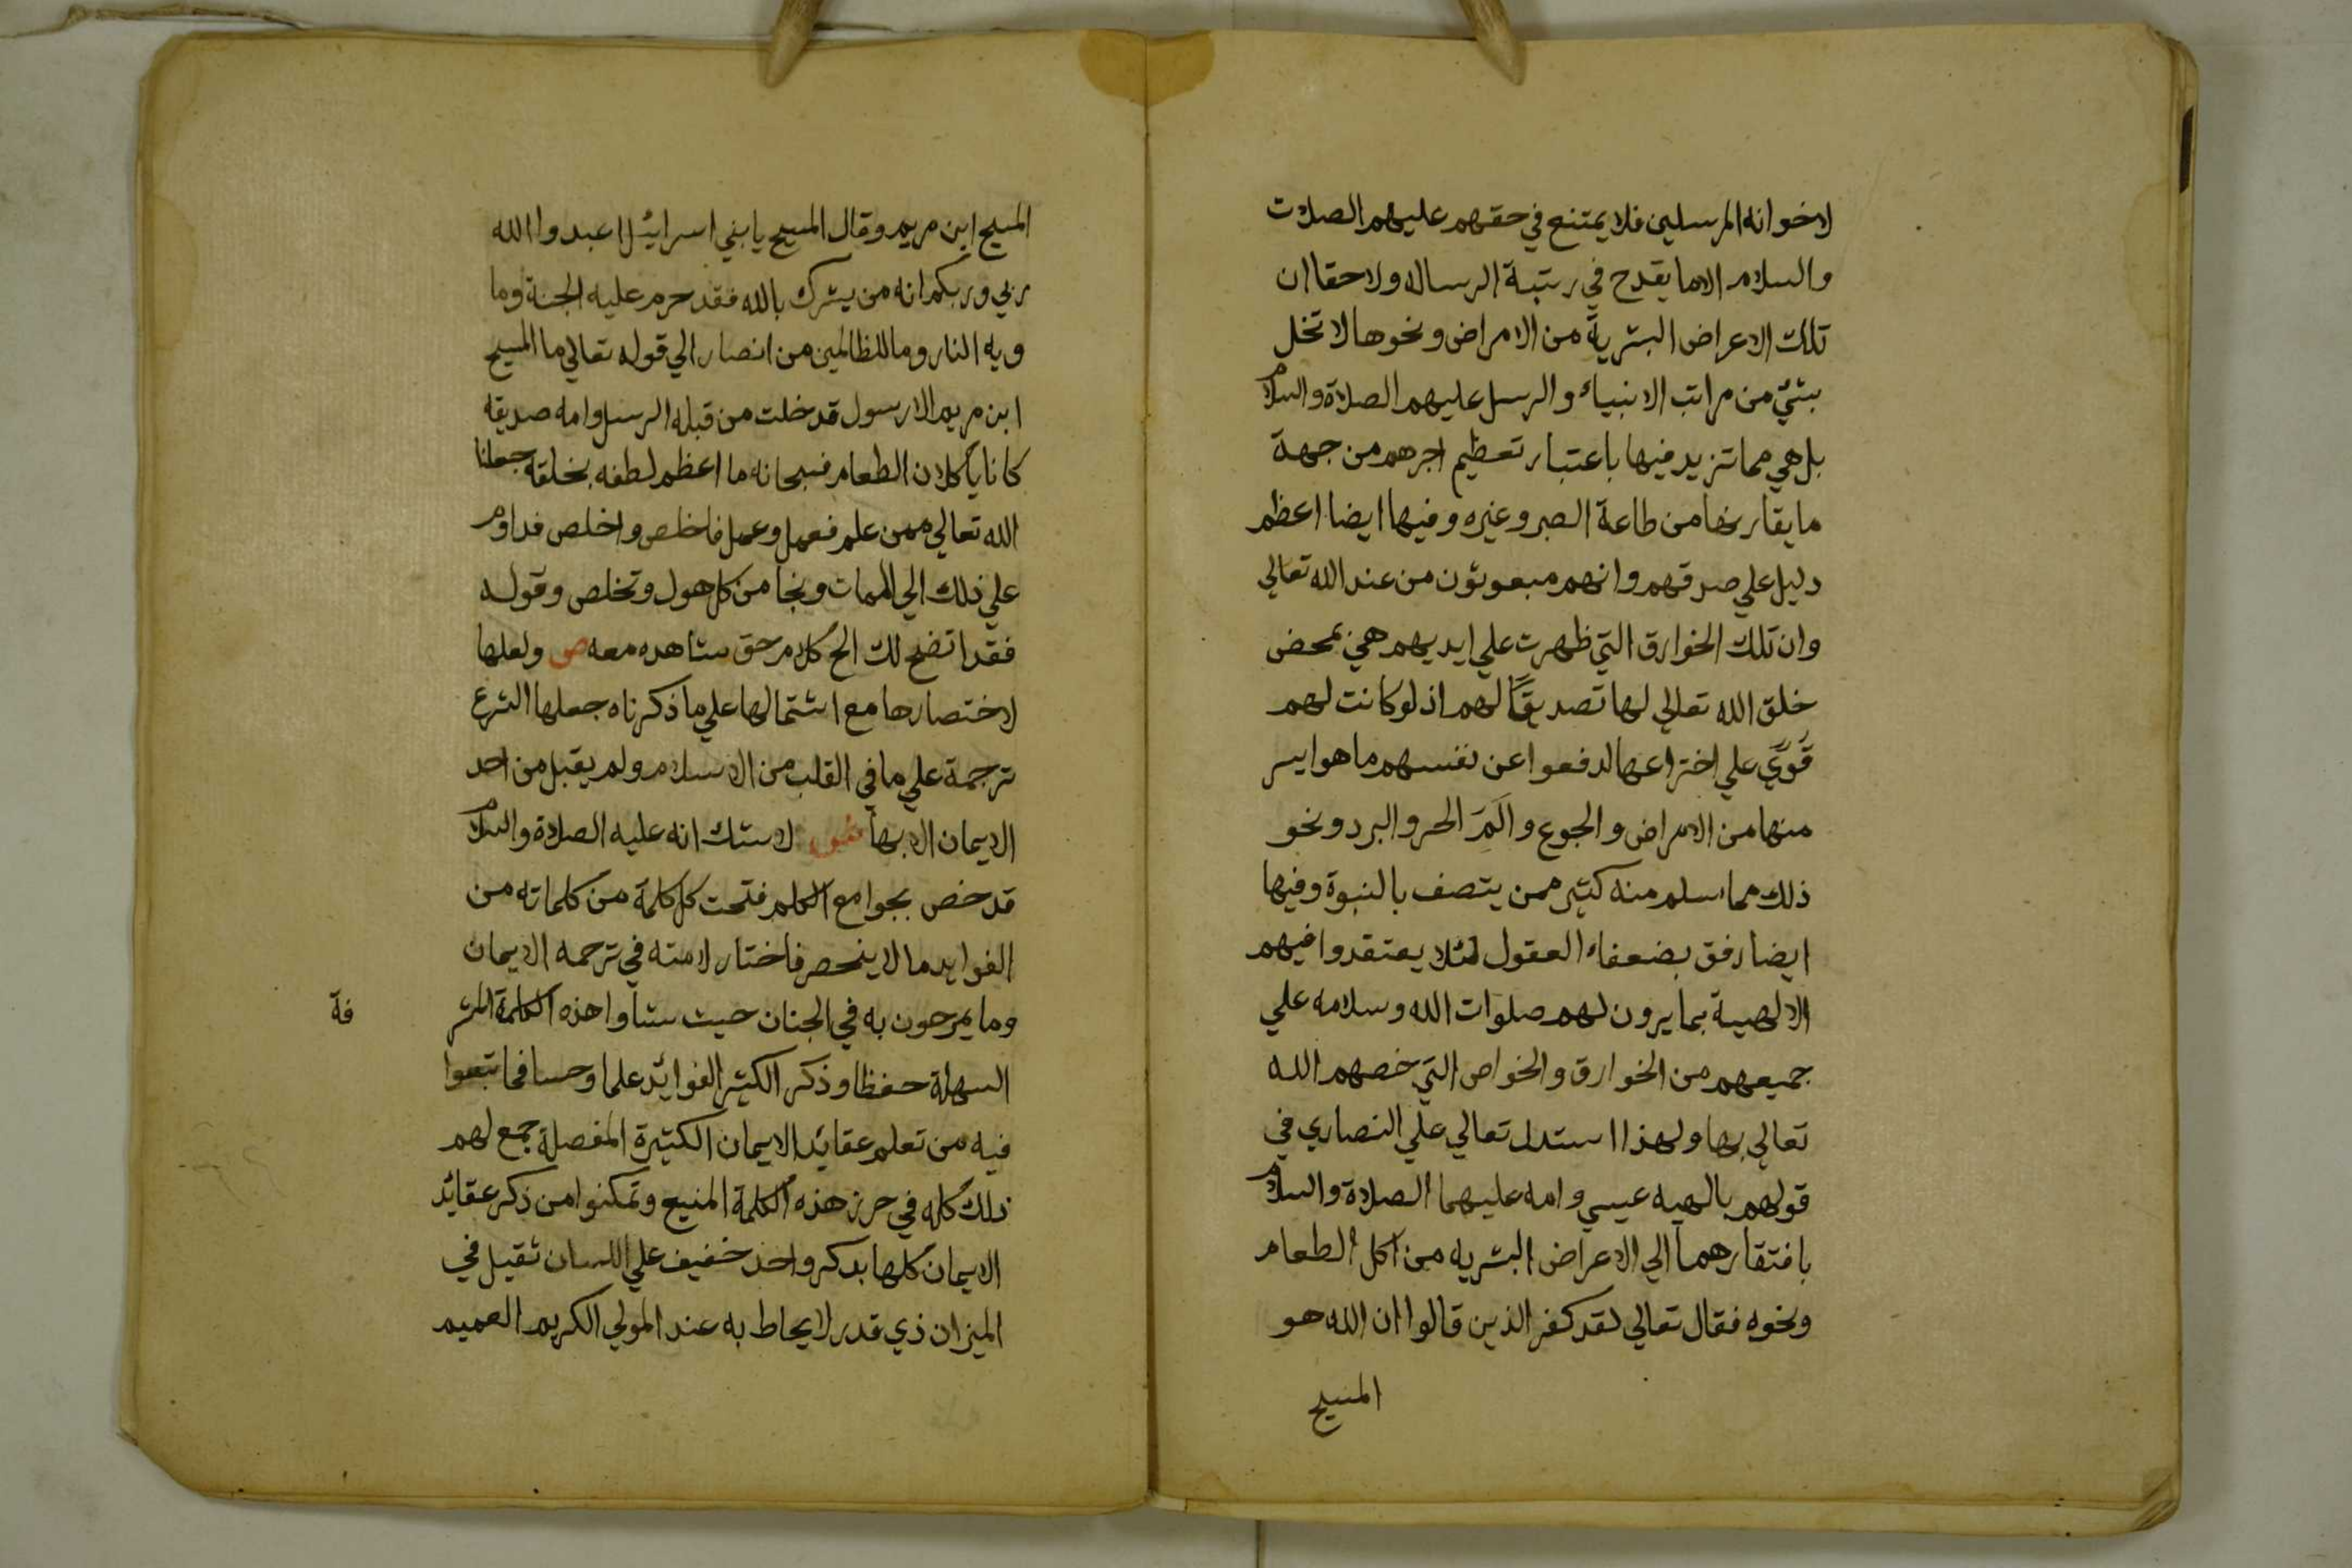 لاخوانه المرسلين فلا يمتنع في حقهم عليهم الصلات
والسلام الا ما يقدح في رتبة الرسالة ولا حقا ان
تلك الاعراض البشرية من الامراض ونحوها لا تخل
بشئ من مراتب الانبياء والرسل عليهم الصلاة والسلام
بل هي مما تزيد فيها باعتبار تعظيم اجرهم من جهة
ما يقارنها من طاعة الصبر وغيره وفيها ايضا اعظم
دليل علي صدقهم وانهم مبعوثون من عند الله تعالي
وان تلك الخوارق التي ظهرت علي ايديهم هي بمحض
خلق الله تعالي لها تصديقًا لهم اذ لو كانت لهم
قَوَي علي اختراعها لدفعوا عن نفسهم ما هو ايسر
منها من الامراض والجوع والَمَ الحر والبرد ونحو
ذلك مما سلم منه كثير ممن يتصف بالنبوة وفيها
ايضا رفق بضعفاء العقول لئلا يعتقدوا فيهم
الالهية بما يرون لهم صلوات الله وسلامه علي
جميعهم من الخوارق والخواص التي خصهم الله
تعالي بها ولهذا استدل تعالي علي النصاري في
قولهم بالهيه عيسي وامه عليهما الصلاة والسلام
بافتقارهما الي الاعراض البشريه من اكل الطعام
ونحوه فقال تعالي لقد كفر الذين قالوا ان الله هو
المسيح
المسيح ابن مريم وقال المسيح يا بني اسرائيل اعبدوا الله
ربي وربكم انه من يشرك بالله فقد حرم عليه الجنة وما
ويه النار وما للظالمين من انصار الي قوله تعالي ما المسيح
ابن مريم الا رسول قد خلت من قبله الرسل وامه صديقه
كانا يأكلان الطعام فسبحانه ما اعظم لطفه بخلقه جعلنا
الله تعالي ممن علم فعمل وعمل فاخلص واخلص فداوم
علي ذلك الي الممات ونجا من كل هول وتخلص وقوله
فقد اتضح لك الخ كلام حق شاهده معه ص ولعلها
لاختصارها مع اشتمالها علي ما ذكرناه جعلها الشرع
ترجمة علي ما في القلب من الاسلام ولم يقبل من احد
الايمان الا بها ش لا شك انه عليه الصلاة والسلام
قد خص بجوامع الكلم فتحت كل كلمة من كلماته من
الفوايد ما لا ينحصر فاختار لامته في ترجمه الايمان
وما يمرحون به في الجنان حيث شاوا هذه الكلمة المشر
فة
السهلة حفظا وذكر الكثير الفوائد علما وحسا فما تبعوا
فيه من تعلم عقائد الايمان الكثيرة المفصلة جمع لهم
ذلك كله في حرز هذه الكلمة المنيع وتمكنوا من ذكر عقائد
الايمان كلها بذكر واحد خفيف علي اللسان ثقيل في
الميزان ذي قدر لا يحاط به عند المولي الكريم العميم